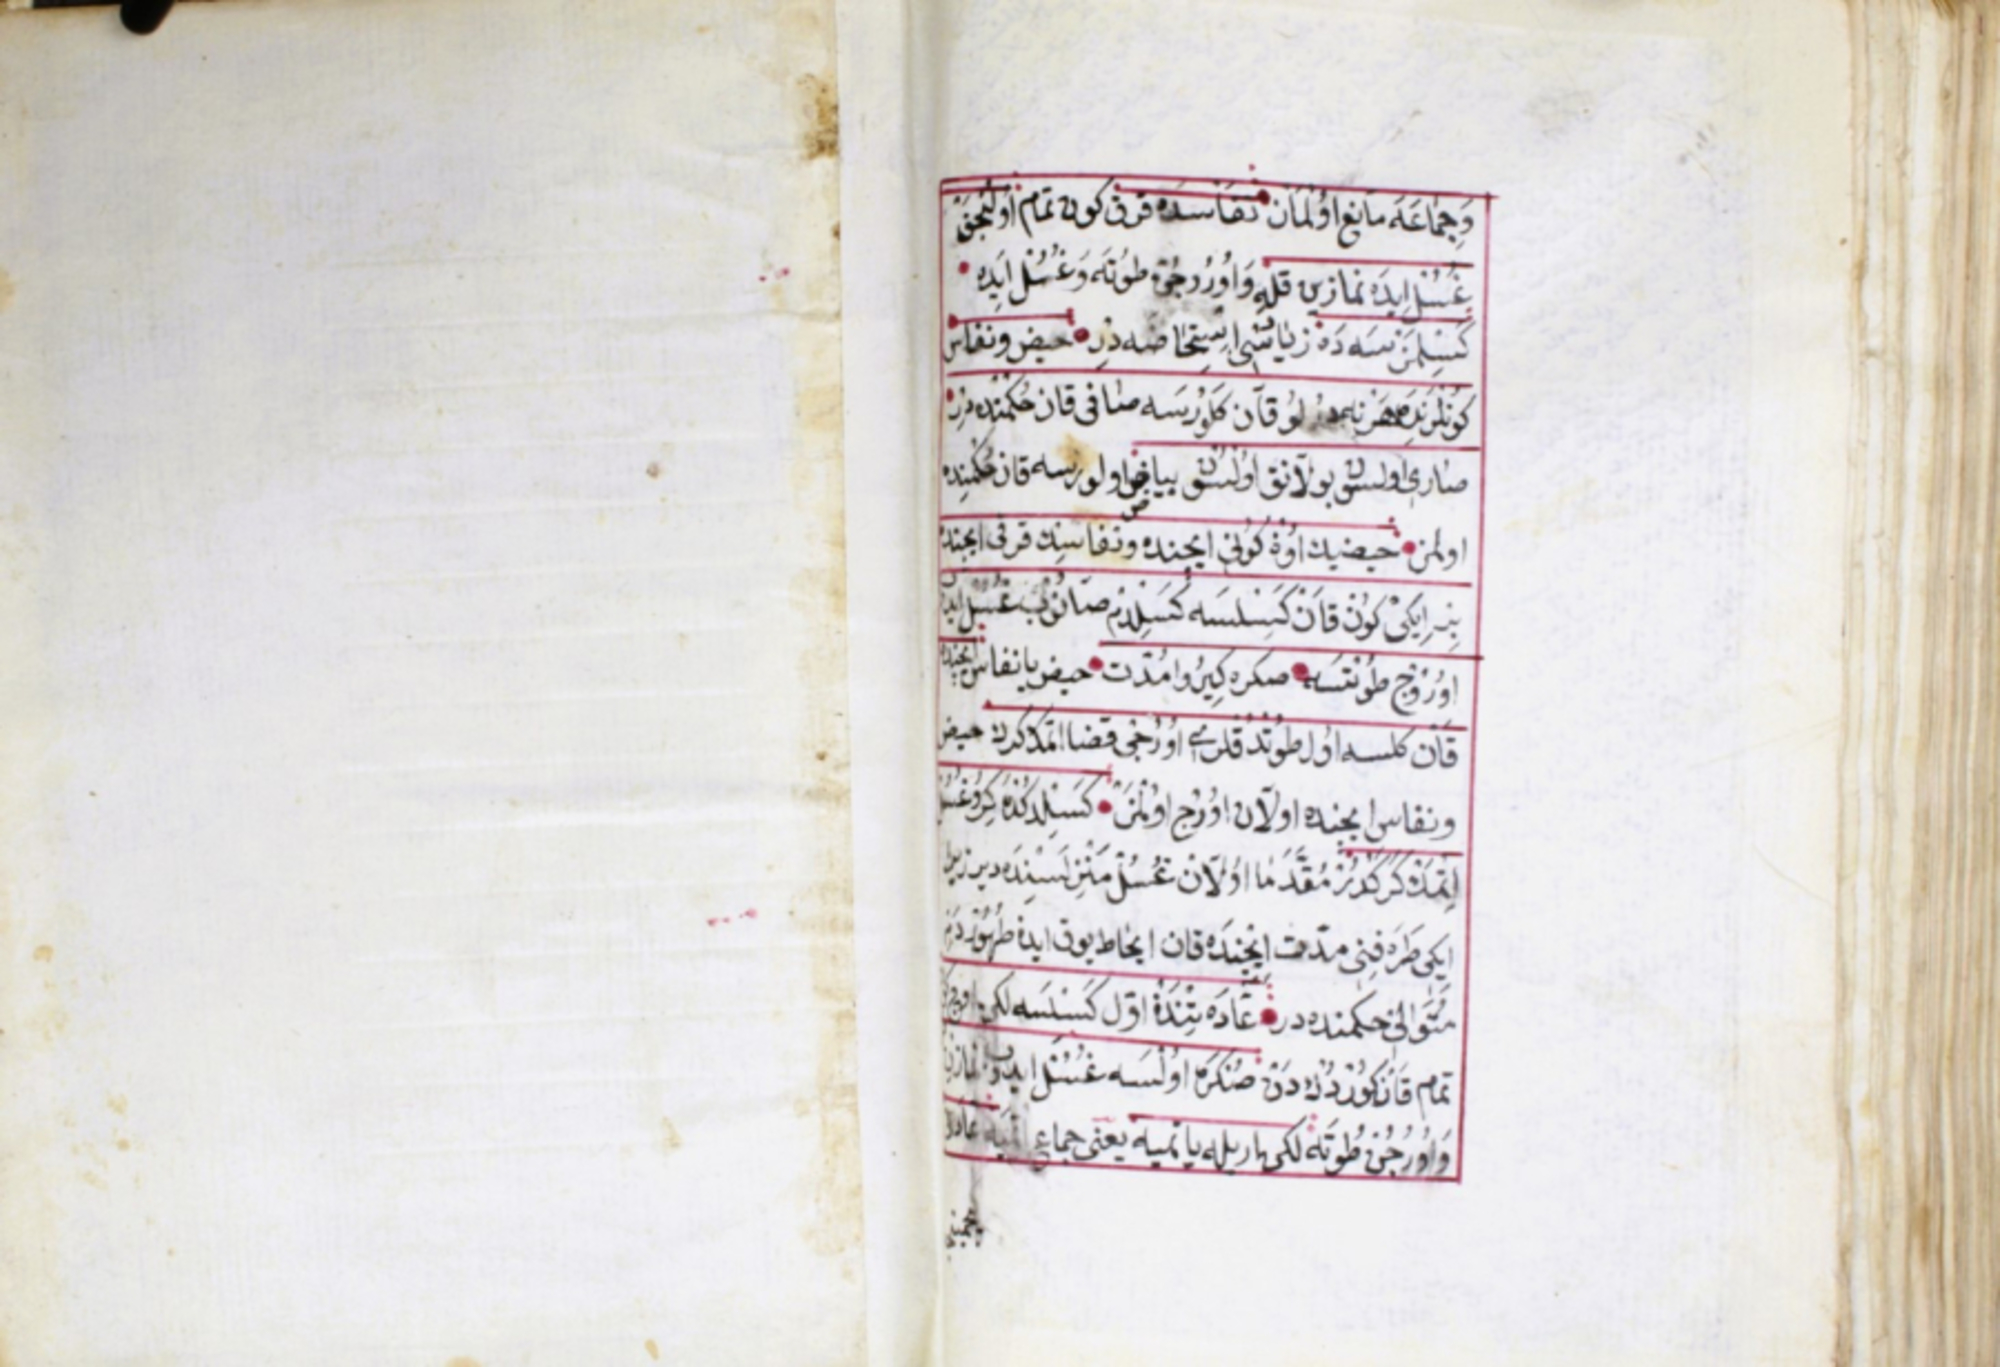 وَجِمَاعَه مَانِع اوُلمَان نفاسده قرق كون تمام اوُلنجق
غُسُل ايده نمازين قله وَاوُرُوجن طوُته وَغُسُل ايده
كَسِلمَزسه دَه زياسى استحاضه در حيض ونفاس
كونلرنده هر نه لو قان كلورسه صافى قان حكمنده در
صارى اولسون بولانق اولسون بياض اولورسه قان حكمنده
اولمز حيضيك اون كونى ايچنده ونفاسك قرقى ايچنده
بر ايكى كون قان كسلسه كسلدم صانوب غسل
اوُرُوج طوُتسه صكره كيرو اُمُدّت حيض يا نفاس ايچنده
قان كلسه اول طوتدقلرى اوُرُجى قضا اتمك كرك حيض
ونفاس ايچنده اولان اوُرُج اوُلمز كسلدكده كرو غسل
اتمك كركدر مُقَدَّمَا اوُلان غُسُل منزلسنده دير زيرا
ايكى طَرَفِنى مدت ايچنده قان ايحاط يوق ايده طهر
مُتَوالى حكمنده در عَادَه تندن اوّل كسلسه لكن اوچ
تمام قان كوردكدن صُكره اوُلسه غُسُل ايدوب نمازين
وَاوُرُجن طُوته لكن اريله ياتميه يعنى جماع اتميه عادت